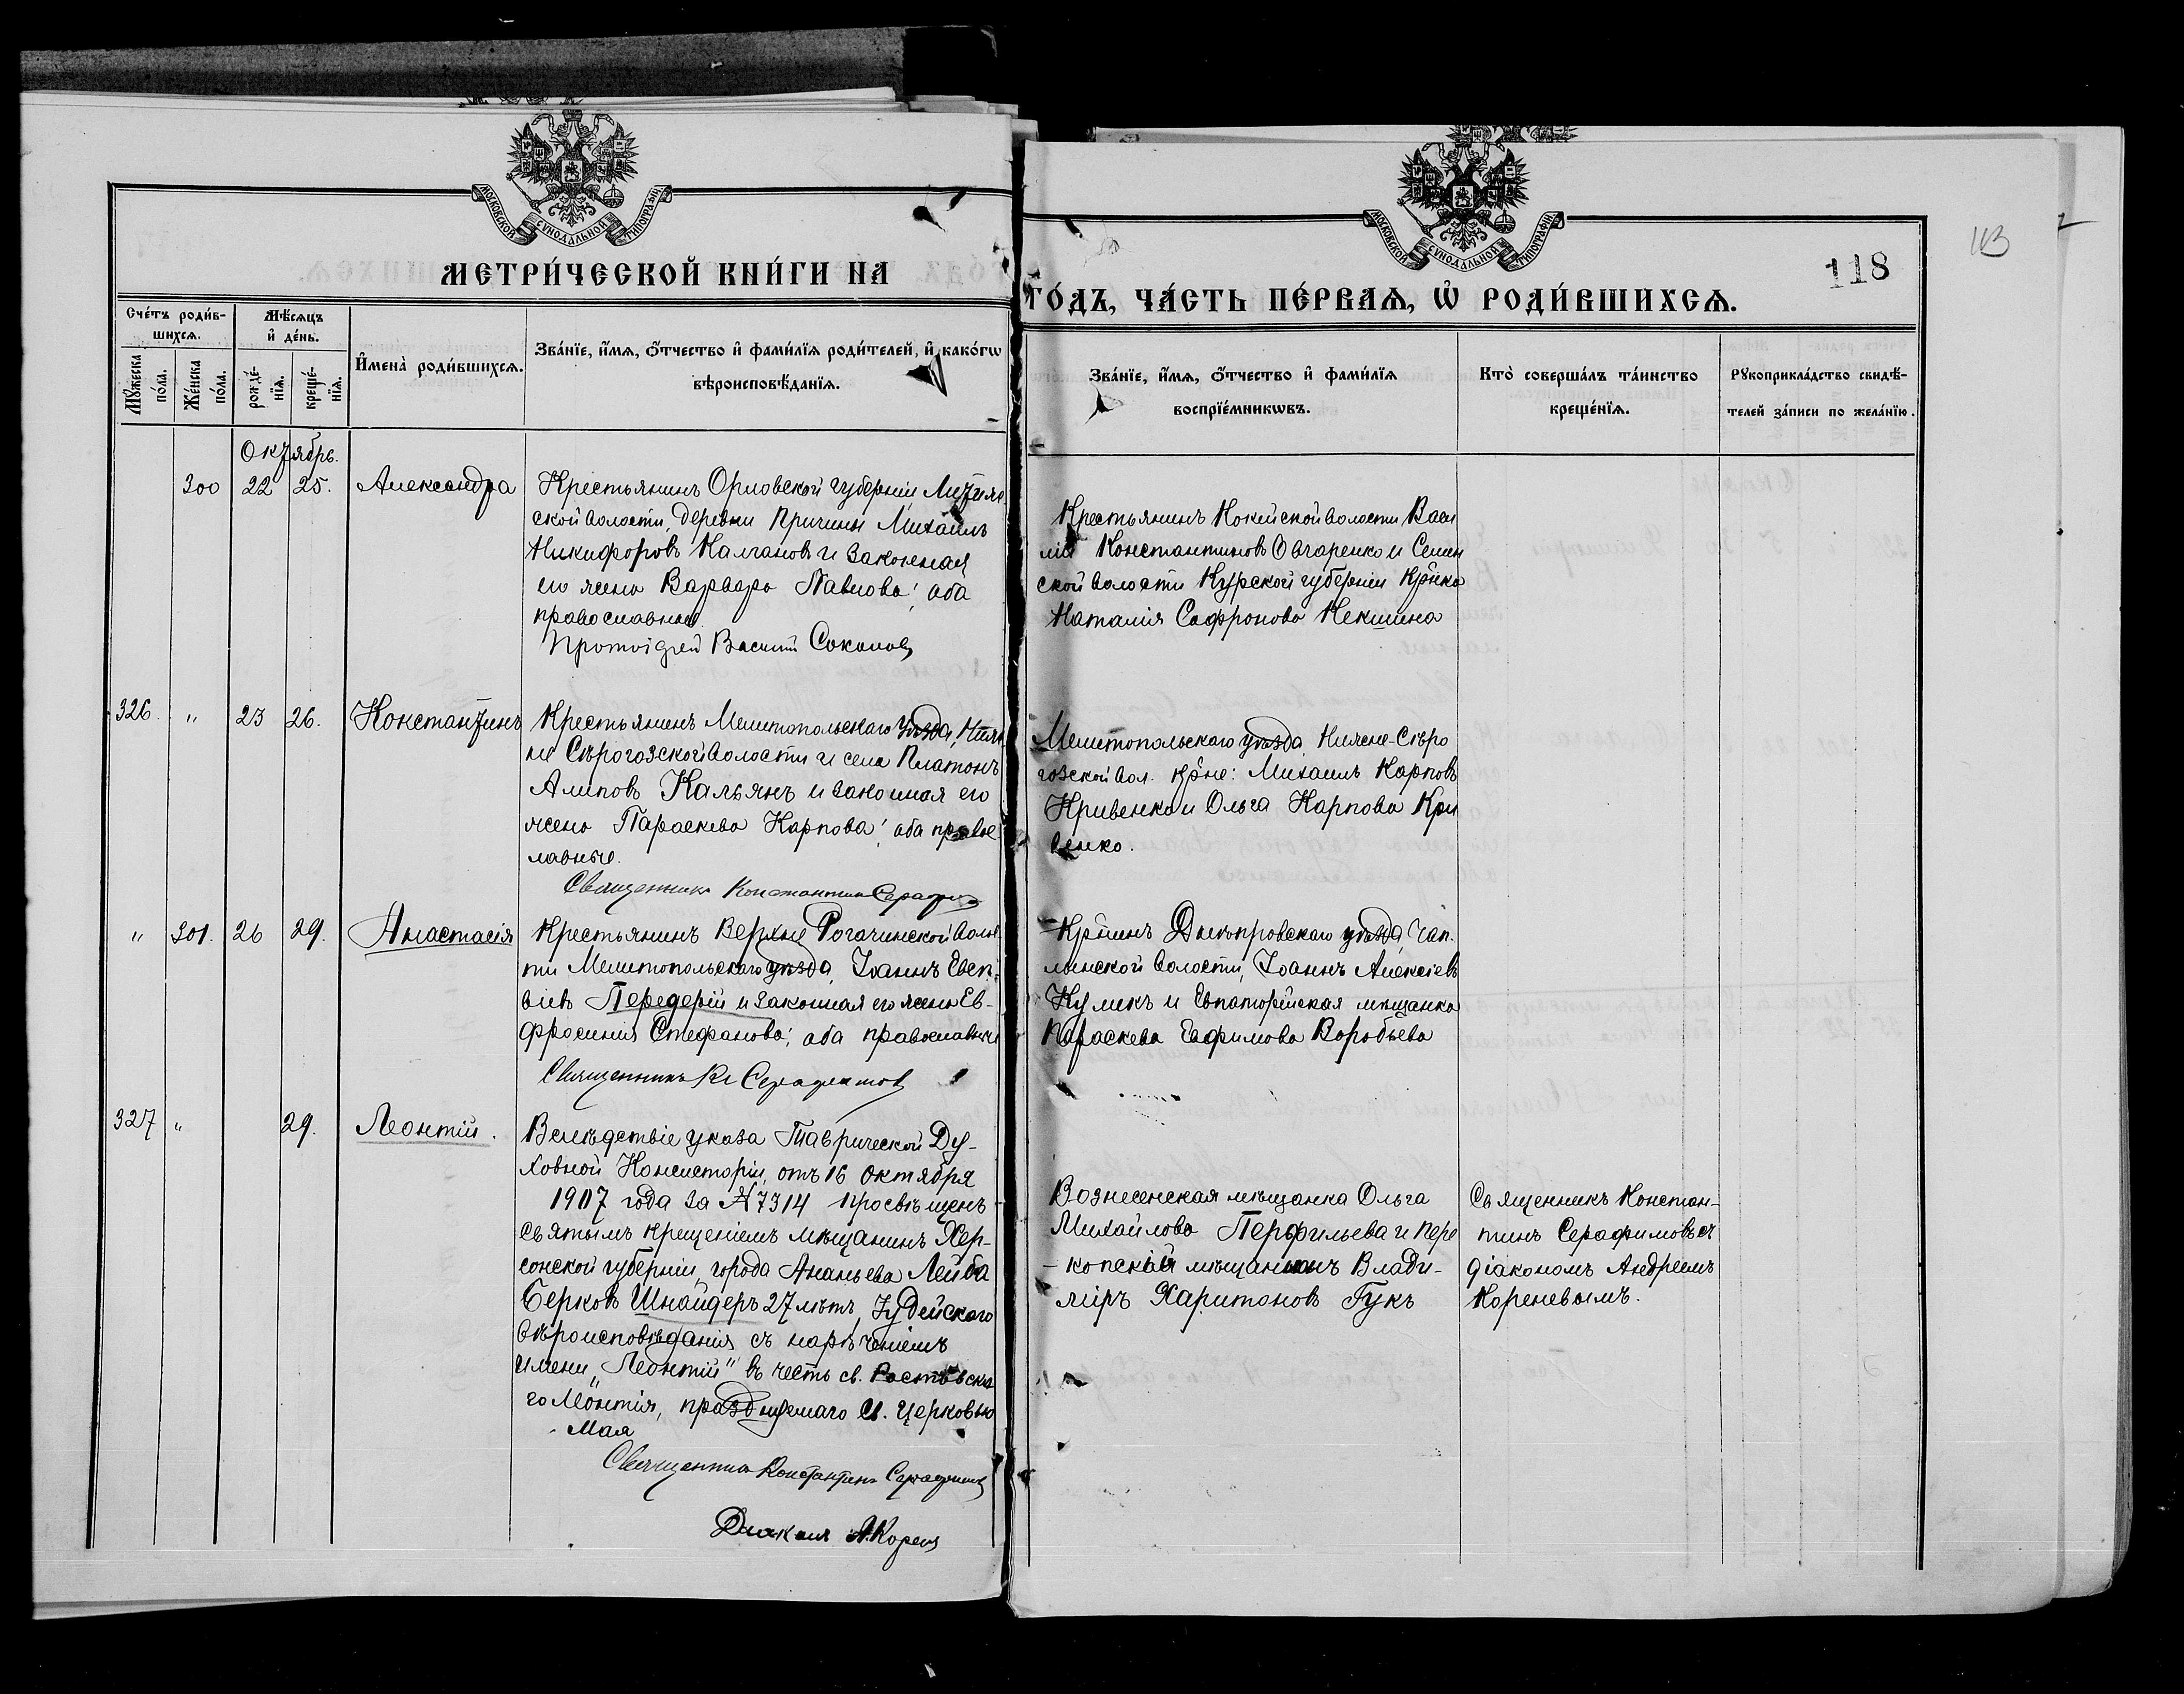 МОСКОВСКОЙ СѴНОДАЛЬНОЙ ТИПОГРАФІИ
МЕТРИ́ЧЕСКОЙ КНИ́ГИ НА
Сче́тъ роди́в-
шихсѧ.
Мѣ́сѧцъ
и҆ де́нь.
И҆мена̀ роди́вшихсѧ.
Зва́нїе, и҆́мѧ, ѻ҆́тчество и҆ фами́лїѧ роди́телей, и҆ како́гѡ
вѣроисповѣ́данїѧ.
Мꙋ́жеска
по́ла.
Же́нска
по́ла.
рожде́-
нїѧ.
креще́-
нїѧ.
Октябрь.
300 22 25. Александра
Крестьянинъ Орловской губерніи,
ской волости, деревни Причины Михаилъ
Никифоровъ Калгановъ и законная
его жена Варвара Павлова; оба
православные.
Протоіерей Василій Соколовъ
326. " 23 26. Константинъ
Крестьянинъ Мелитопольскаго уѣзда, Ниж
не Сѣрогозской волости и села Платонъ
Алиповъ Кальянъ и законная его
жена Параскева Карпова; оба правос
лавные.
Священникъ Константинъ Серафимовъ
" 301. 26 29. Анастасія
Крестьянинъ Верхне Рогачинской волос
ти Мелитопольскаго уѣзда, Іоаннъ Евсе
віевъ Передерій и законная его жена Ев-
фросинія Стефанова; оба православные
Священникъ К. Серафимовъ
327 " 29. Леонтій.
Вслѣдствіе указа Таврической Ду-
ховной Консисторіи, отъ 16 Октября
1907 года за № 7314 просвѣщенъ
святымъ крещеніемъ мѣщанинъ Хер-
сонской губерніи, города Ананьева Лейба
Берковъ Шнайдеръ 27 лѣтъ, Іудейскаго
вѣроисповѣданія съ нарѣченіемъ
имени „Леонтій" въ честь св. Ростовска
го Леонтія, празднуемаго св. Церковью
Мая
Священникъ Константинъ Серафимовъ
Діаконъ А. Кореневъ
МОСКОВСКОЙ СѴНОДАЛЬНОЙ ТИПОГРАФІИ
118
113
ГО́ДЪ, ЧА́СТЬ ПЕ́РВАѦ, Ѡ҆ РОДИ́ВШИХСѦ.
Зва́нїе, и҆́мѧ, ѻ҆́тчество и҆ фами́лїѧ
воспрїе́мникѡвъ.
Кто̀ соверша́лъ та́инство
креще́нїѧ.
Рꙋкоприкла́дство свидѣ́-
телей за́писи по жела́нїю.
Крестьянинъ Кокейской волости Васи
лій Константиновъ Овчаренко и Семен
ской волости Курской губерніи кр-нка
Наталія Сафронова Кекшина
Мелитопольскаго уѣзда Нижне-Сѣро
гозской вол. кр-не: Михаилъ Карповъ
Кривенко и Ольга Карпова Кри
венко.
Кр-нинъ Днѣпровскаго уѣзда, Чап-
линской волости, Іоаннъ Алексіевъ
Куликъ и Евпаторійская мѣщанка
Параскева Евфимова Воробьева
Вознесенская мѣщанка Ольга
Михайлова Перфильева и Пере
-копскій мѣщанинъ Влади-
міръ Харитоновъ Гукъ
Священникъ Констан-
тинъ Серафимовъ съ
діакономъ Андреемъ
Кореневымъ.